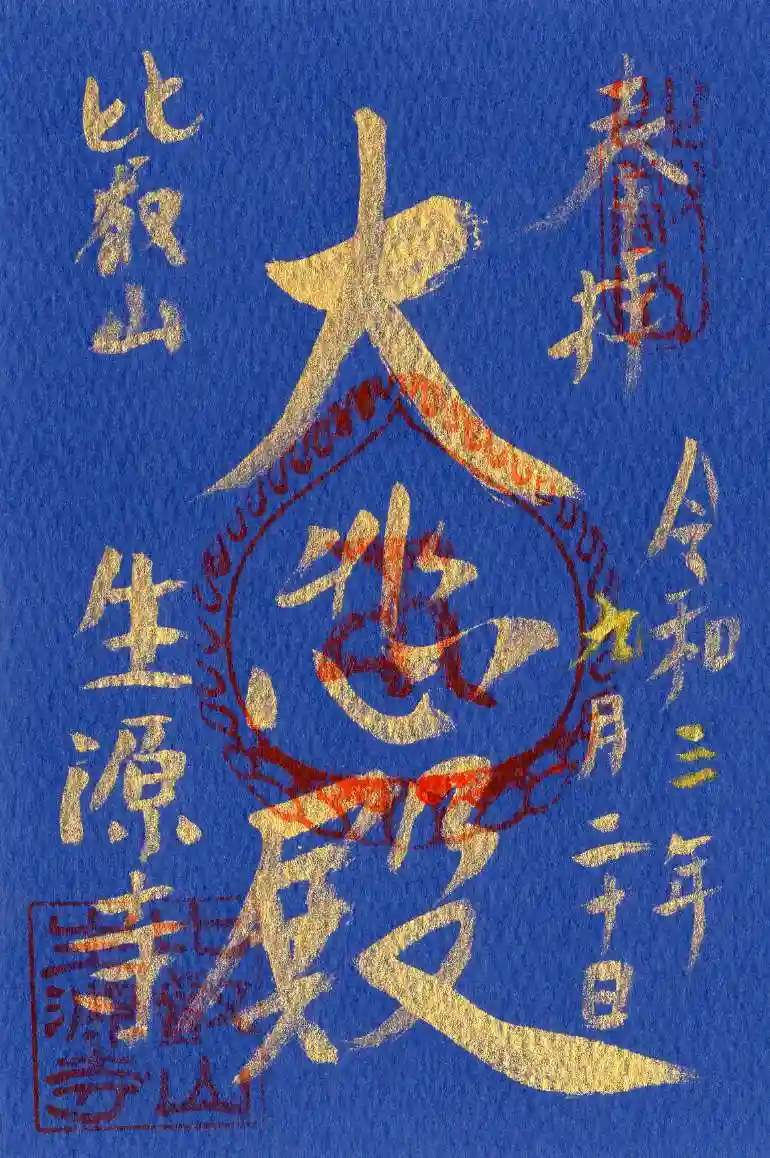 奉拝
令和三年
九月二十日
大悲殿
比叡山
生源寺
比叡山
生源寺